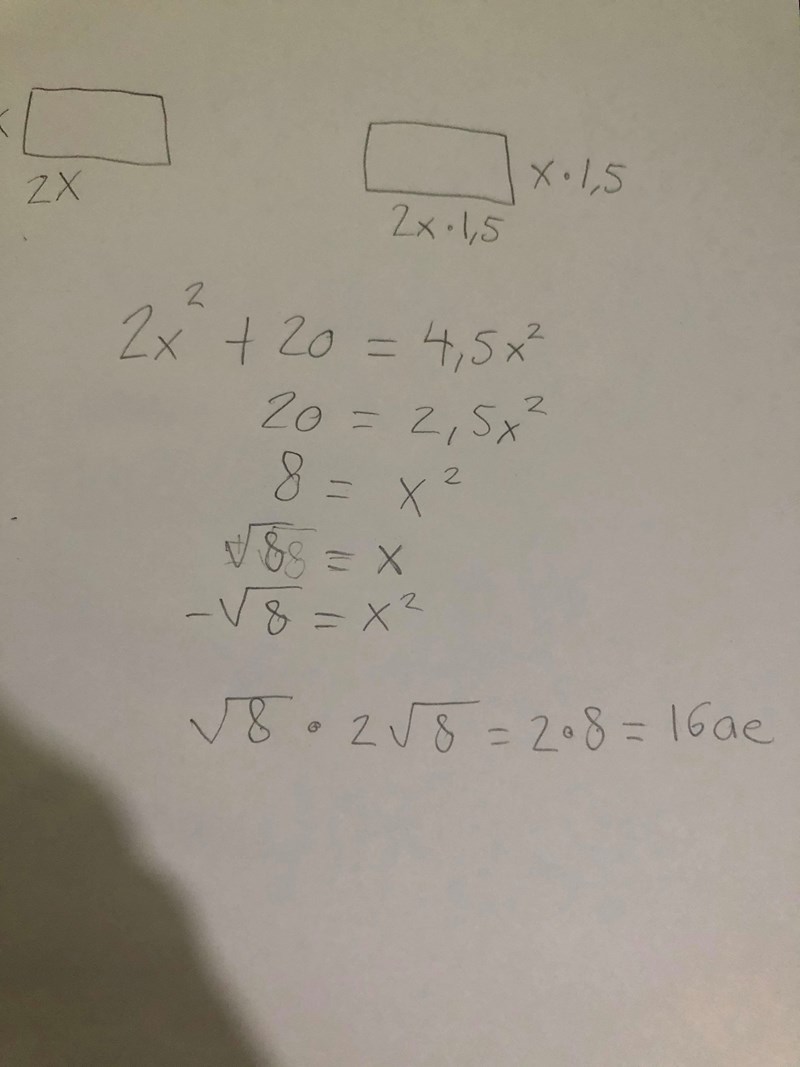 x
2x
x·1,5
2x·1,5
2x² + 20 = 4,5x²
20 = 2,5x²
8 = x²
= x
-√8 = x²
√8 · 2√8 = 2·8 = 16ae